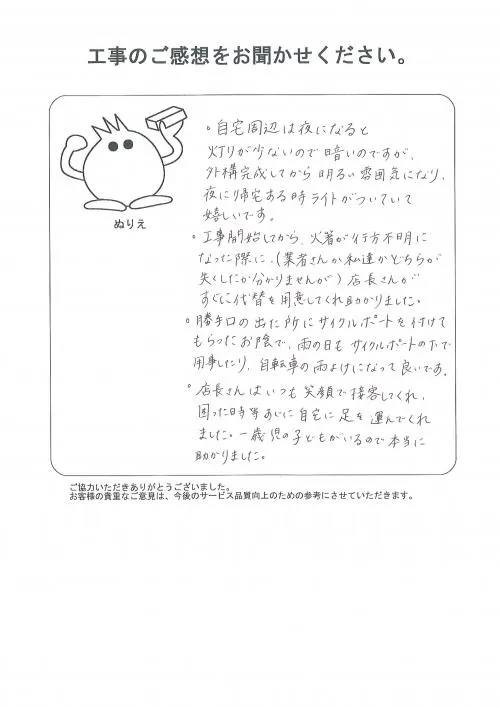 工事のご感想をお聞かせください。
ぬりえ
。自宅周辺は夜になると
灯りが少ないので暗いのですが、
外構完成してから明るい雰囲気になり、
夜に帰宅する時ライトがついていて
嬉しいです。
。工事開始してから、火箸が行方不明に
なった際に、(業者さんか私達かどちらが
失くしたか分かりませんが)店長さんが
すぐに代替を用意してくれ助かりました。
。勝手口の出た所にサイクルポートを付けて
もらったお陰で、雨の日もサイクルポートの下で
用事したり、自転車の雨よけになって良いです。
。店長さんはいつも笑顔で接客してくれ、
困った時等すぐに自宅に足を運んでくれ
ました。一歳児の子どもがいるので本当に
助かりました。
ご協力いただきありがとうございました。
お客様の貴重なご意見は、今後のサービス品質向上のための参考にさせていただきます。